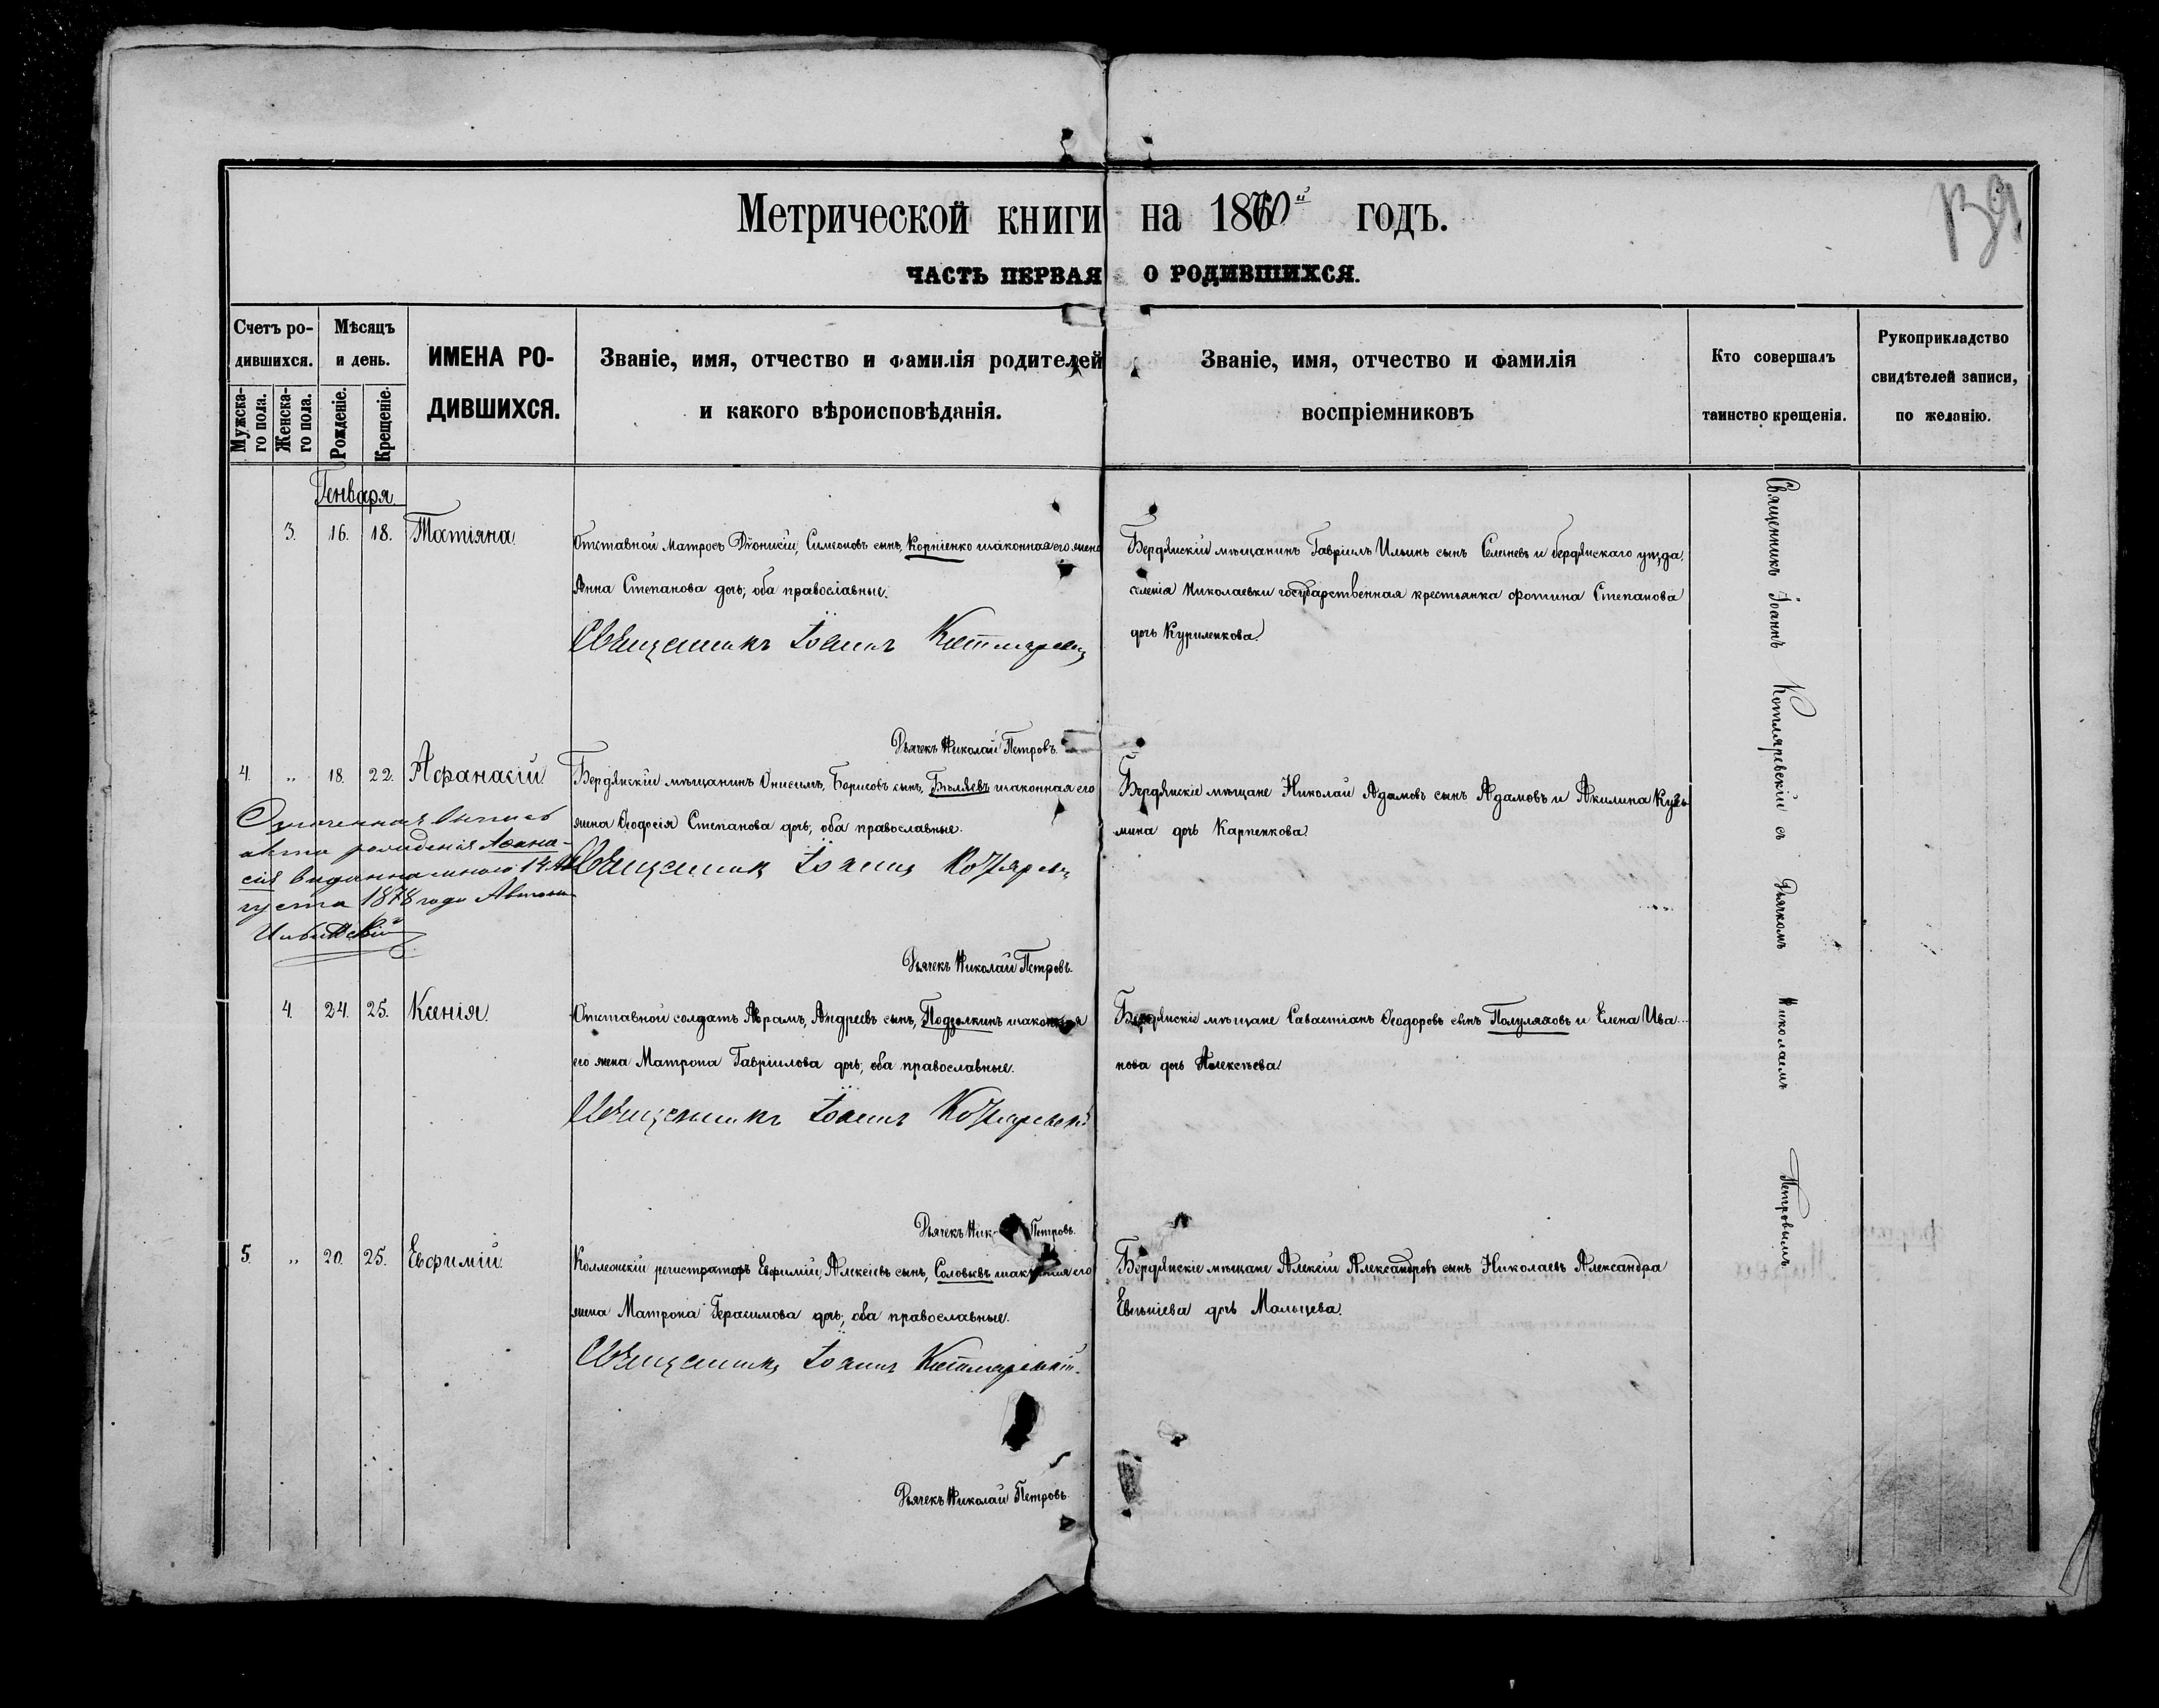 Метрической книги на 1870й годъ.
ЧАСТЬ ПЕРВАЯ О РОДИВШИХСЯ.
Счетъ ро-
дившихся.
Мужска-
го пола.
Женска-
го пола.
Мѣсяцъ
и день.
Рожденіе.
Крещеніе.
ИМЕНА РО-
ДИВШИХСЯ.
Званіе, имя, отчество и фамилія родителей
и какого вѣроисповѣданія.
Званіе, имя, отчество и фамилія
воспріемниковъ
Кто совершалъ
таинство крещенія.
Рукоприкладство
свидѣтелей записи,
по желанію.
Генваря
3. 16. 18. Татіяна.
Отставной матросъ Діонисій, Симеоновъ сынъ, Корніенко изаконная его жена
Анна Степанова дочь; оба православные.
Священникъ Іоаннъ Котляревскій
Дьячекъ Николай Петровъ.
Бердянскій мѣщанинъ Гавріилъ Ильинъ сынъ Селеневъ и бердянскаго уѣзда,
селенія Николаевки государственная крестьянка Фотина Степанова
дочь Куриленкова.
4. „ 18. 22. Афанасій
Бердянскій мѣщанинъ Онисимъ, Борисовъ сынъ, Бѣляевъ изаконная его
жена Ѳеодосія Степанова дочь; оба православные.
Священникъ Іоаннъ Котляревскій
Дьячекъ Николай Петровъ.
Бердянскіе мѣщане Николай Адамовъ сынъ Адамовъ и Акилина Кузь-
мина дочь Карпенкова.
акта рожденія Афана-
сія выдана мною 14 Ав
густа 1878 года
4. 24. 25. Ксенія.
Отставной солдатъ Аврамъ, Андреевъ сынъ, Подзолкинъ изаконная
его жена Матрона Гавріилова дочь; оба православные.
Священникъ Іоаннъ Котляревскій
Дьячекъ Ник Петровъ.
Бердянскіе мѣщане Савастіанъ Ѳеодоровъ сынъ Полуляховъ и Елена Ива
нова дочь Алексѣева
5. „ 20. 25. Евфимій.
Коллежскій регистраторъ Евфимій, Алексіевъ сынъ, Соловьевъ изаконная его
жена Матрона Герасимова дочь; оба православные.
Священникъ Іоаннъ Котляревскій.
Дьячекъ Николай Петровъ.
Бердянскіе мѣщане Алексій Александровъ сынъ Николаевъ Александра
дочь Мальцева.
Священникъ Іоаннъ Котляревскій съ Дьячкомъ Николаемъ Петровымъ